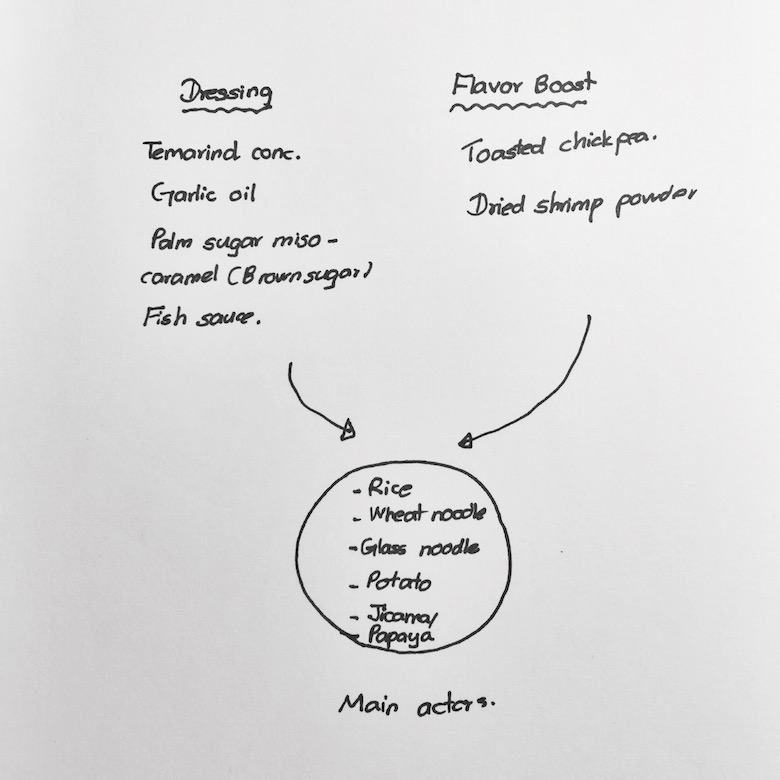 Dressing
Temarind conc.
Garlic oil
Palm sugar miso -
caramel (Brown sugar)
Fish sauce.
Flavor Boost
Toasted chickpea.
Dried shrimp powder
- Rice
- Wheat noodle
- Glass noodle
- Potato
- Jicama/
- Papaya
Main actors.